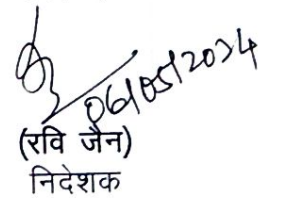 06/05/2024
(रवि जैन)
निदेशक